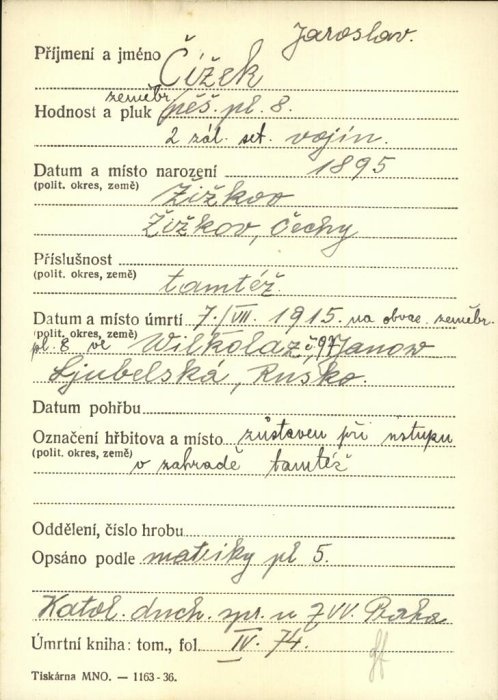 Jaroslav.
Příjmení a jméno Čížek
zeměbr.
Hodnost a pluk pěš. pl. 8.
2 zál. set. vojín.
Datum a místo narození 1895
(polit. okres, země) Žižkov
Žižkov, Čechy
Příslušnost
(polit. okres, země) tamtéž.
Datum a místo úmrtí 7./VII. 1915. na obvaz. zeměbr.
(polit. okres, země) pl. 8 ve Wilkolaz č. 97 Janow
Ljubelská, Rusko.
Datum pohřbu
Označení hřbitova a místo zůstaven při ústupu
(polit. okres, země) v zahradě tamtéž
Oddělení, číslo hrobu
Opsáno podle matriky pl 5.
Katol. duch. spr. u ZVV. Praha
Úmrtní kniha: tom., fol. IV. 74.
Tiskárna MNO. — 1163-36.